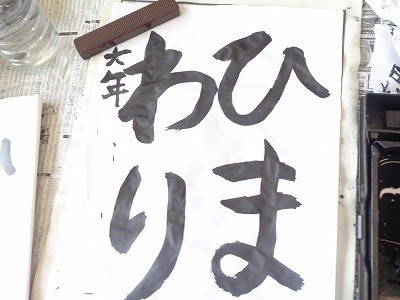 ひま
わり
六年